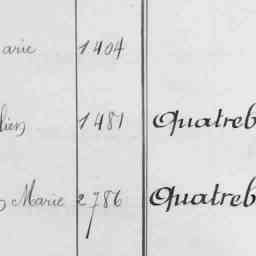 arie 1404
lien 1481 Quatreb
Marie 2786 Quatreb